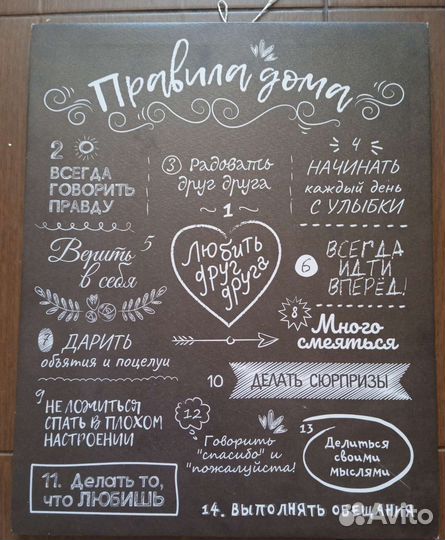 Правила дома
2
ВСЕГДА
ГОВОРИТЬ
ПРАВДУ
3 Радовать
друг друга
4
НАЧИНАТЬ
каждый день
С УЛЫБКИ
~ 1 ~
Любить
друг
друга
5
Верить
в себя
6
ВСЕГДА
ИДТИ
ВПЕРЁД!
7 ДАРИТЬ
объятия и поцелуи
8
Много
смеяться
9
НЕ ЛОЖИТЬСЯ
СПАТЬ В ПЛОХОМ
НАСТРОЕНИИ
10 ДЕЛАТЬ СЮРПРИЗЫ
11. Делать то,
что ЛЮБИШЬ
12
Говорить
"спасибо" и
"пожалуйста!
13
Делиться
своими
мыслями
14. ВЫПОЛНЯТЬ ОБЕЩАНИЯ
Avito